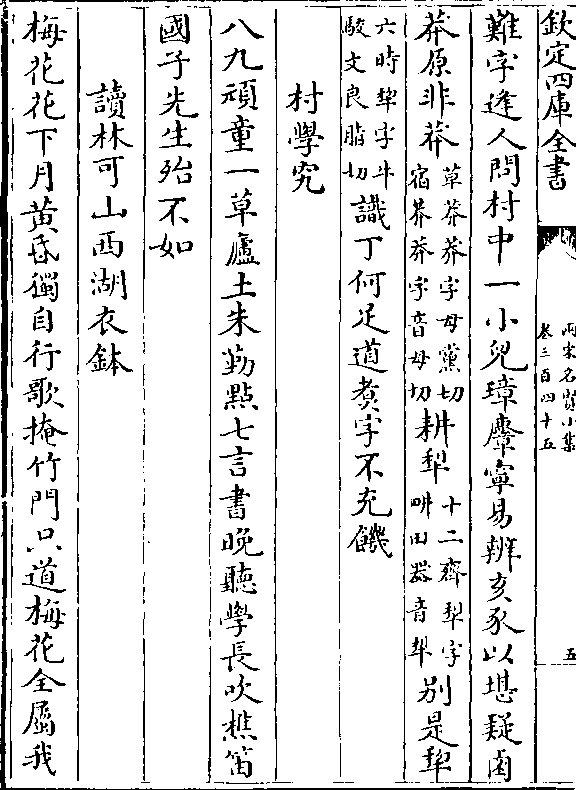 欽定四庫全書
兩宋名賢小集
卷三百四十五
五
難字逢人問村中一小兒璋麞寧易辨亥豕以堪疑鹵
莽原非莽草莽莽字母黨切宿莽莽字音母切耕犁十二齊犁字畊田器音犂別是犂
六時犂字牛駁文良脂切識丁何足道煑字不充饑
村學究
八九頑童一草廬土朱勤點七言書晚聽學長吹樵笛
國子先生殆不如
讀林可山西湖衣鉢
梅花花下月黄昏獨自行歌掩竹門只道梅花全屬我